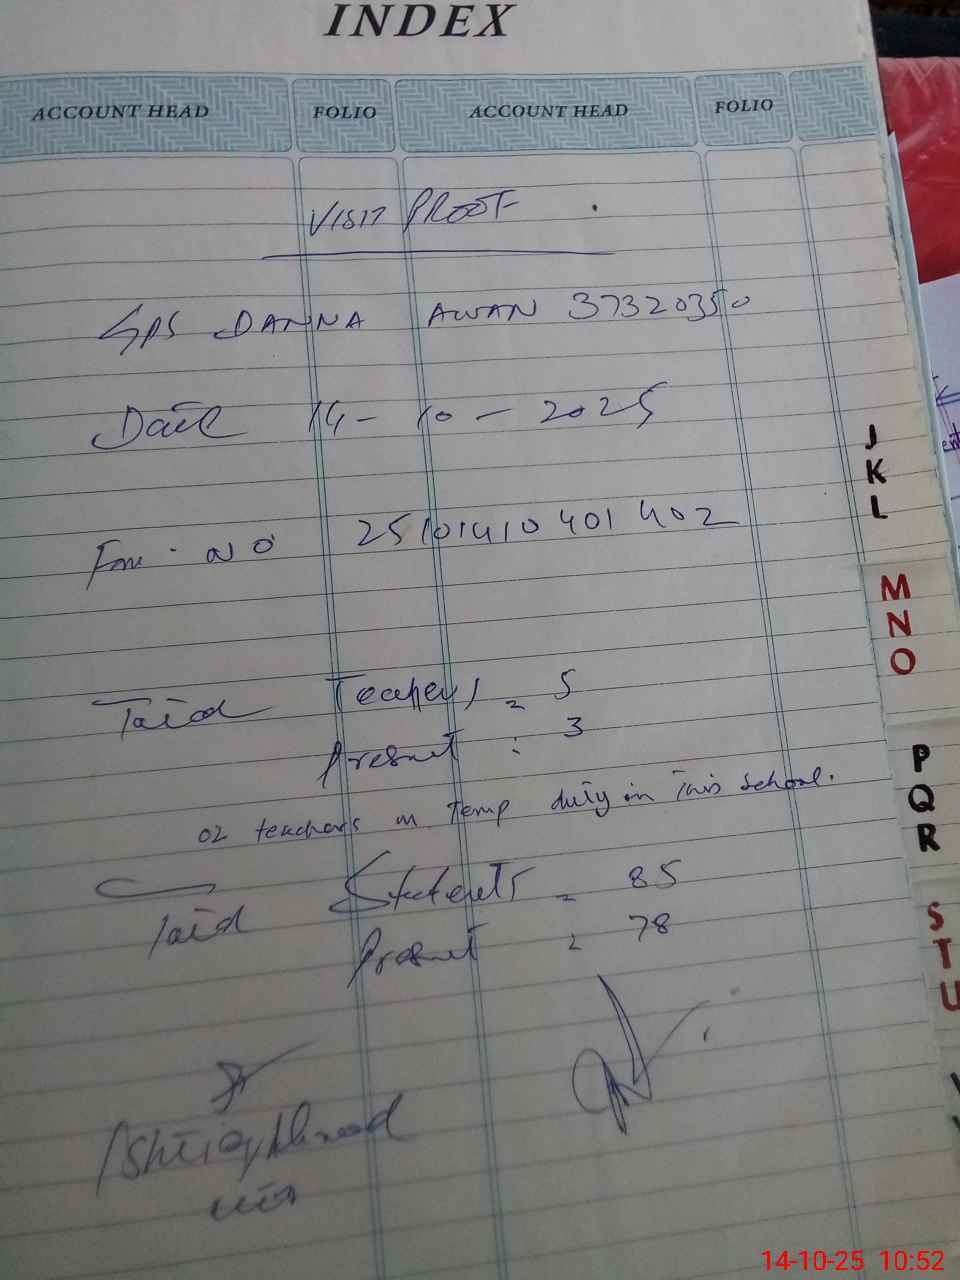 INDEX
ACCOUNT HEAD FOLIO ACCOUNT HEAD FOLIO
VISIT PROOF
GPS DANNA AWAN 37320350
Date 14-10-2025
Fom. NO 25101410401402
J
K
L
M
N
O
Total Teachers = 5
Present : 3
02 teachers on Temp duty in this school.
P
Q
R
Total Students = 85
Present : 78
S
T
U
14-10-25 10:52